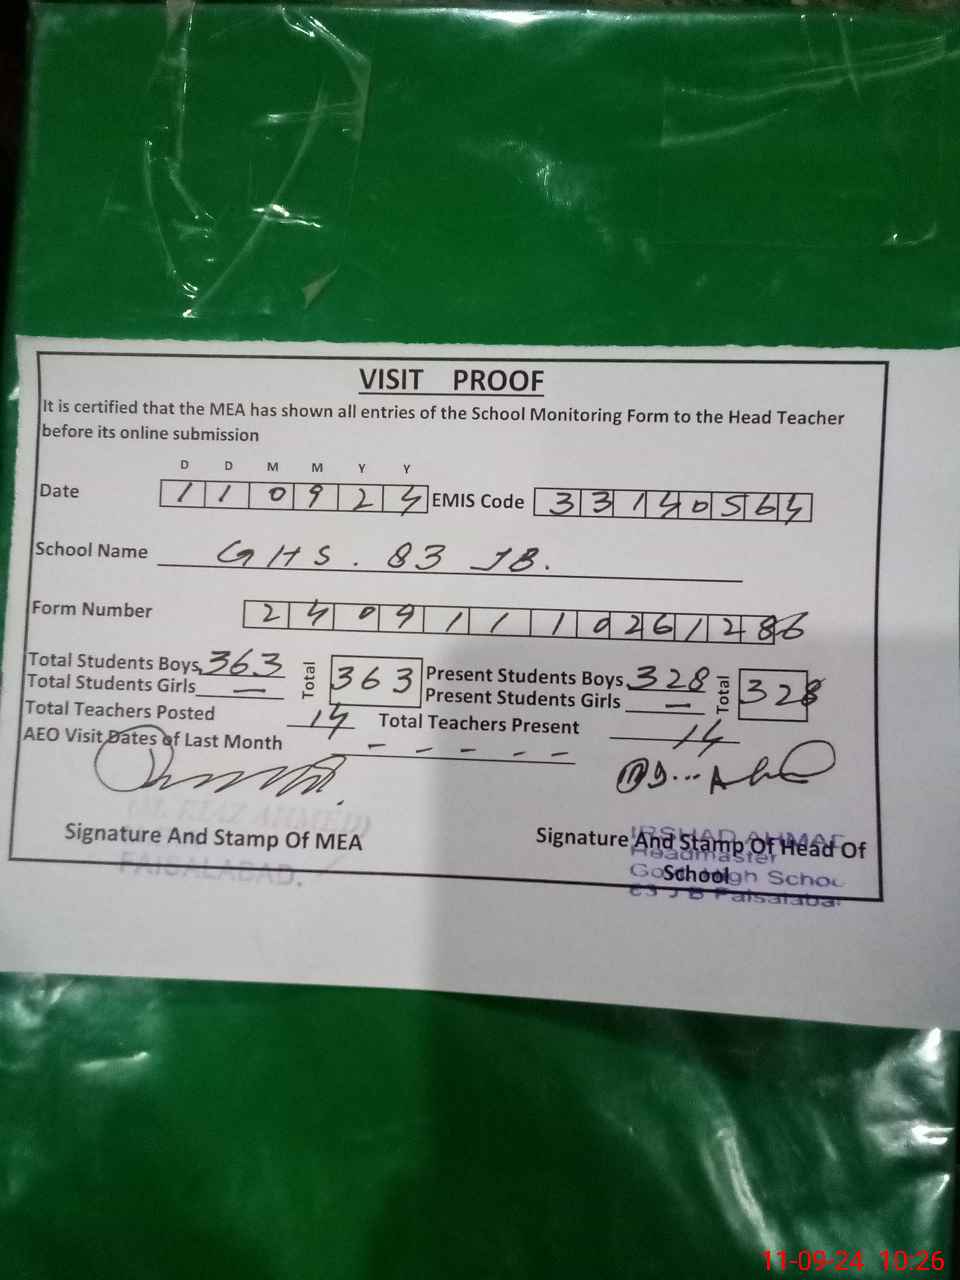 VISIT PROOF
It is certified that the MEA has shown all entries of the School Monitoring Form to the Head Teacher
before its online submission
D D M M Y Y
Date 1 1 0 9 2 4 EMIS Code 3 3 1 4 0 5 6 4
School Name GHS. 83 JB.
Form Number 2 4 0 9 1 1 1 0 2 6 1 2 8 6
Total Students Boys 363 Total 363 Present Students Boys 328 Total 328
Total Students Girls — Present Students Girls —
Total Teachers Posted 14 Total Teachers Present 14
AEO Visit Dates of Last Month - - - - -
(M. RIAZ AHMED)
Signature And Stamp Of MEA
FAISALABAD.
Signature And Stamp Of Head Of
School
IRSHAD AHMAD
Headmaster
Govt High School
83 J B Faisalabad
11-09-24 10:26